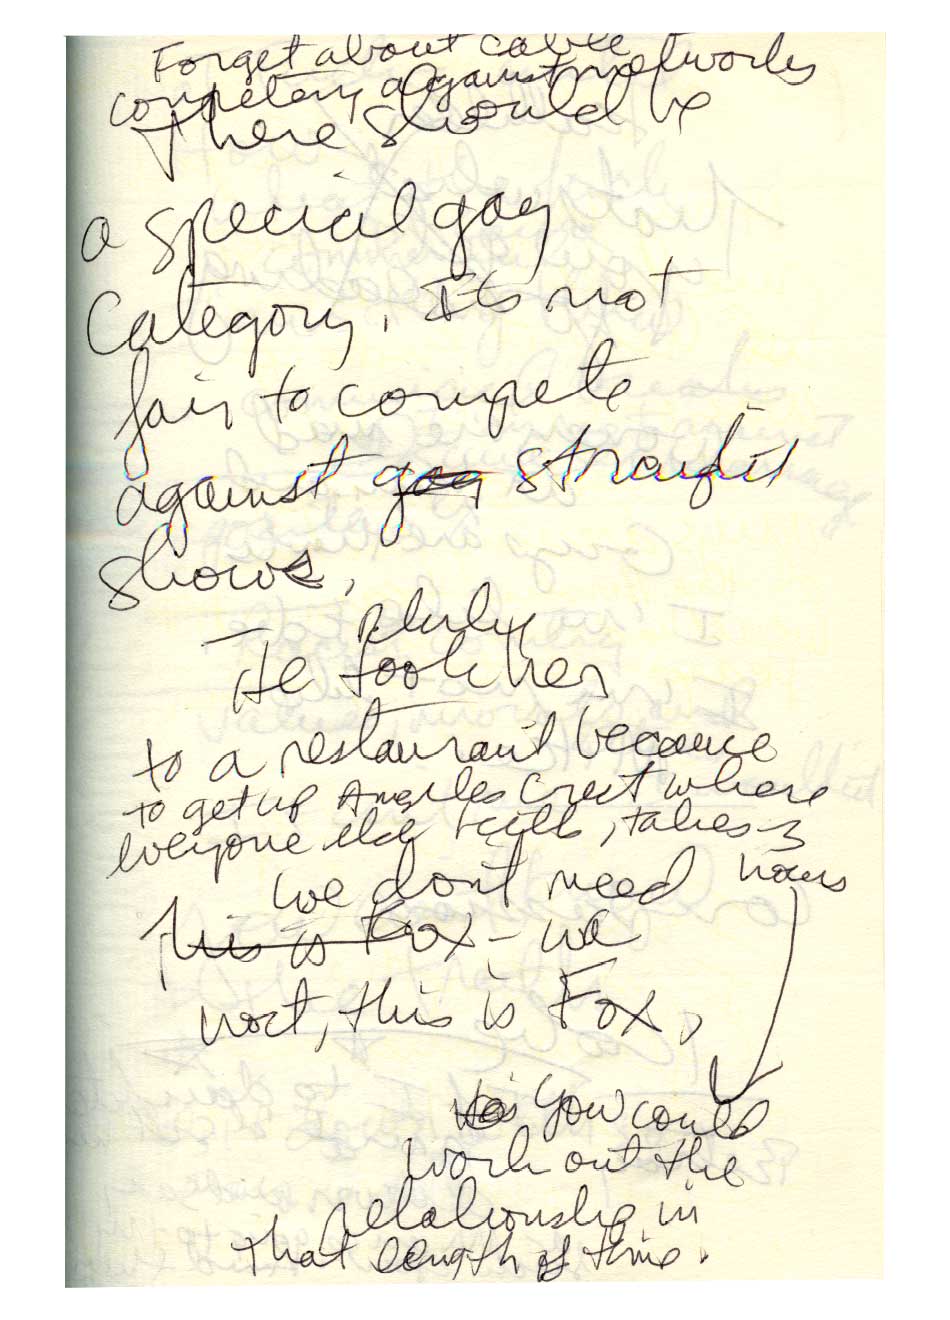 Forget about cable
competeny against networks
There should be
a special gay
Category. Its not
fair to compete
against gay straight
shows.
He took her
to a restaurant because
to get up Angeles Crest where
everyone else kills, takes 3
hours
we dont need
this is Fox - we
wort, this is Fox,
You could
work out the
relationship in
that length of time.